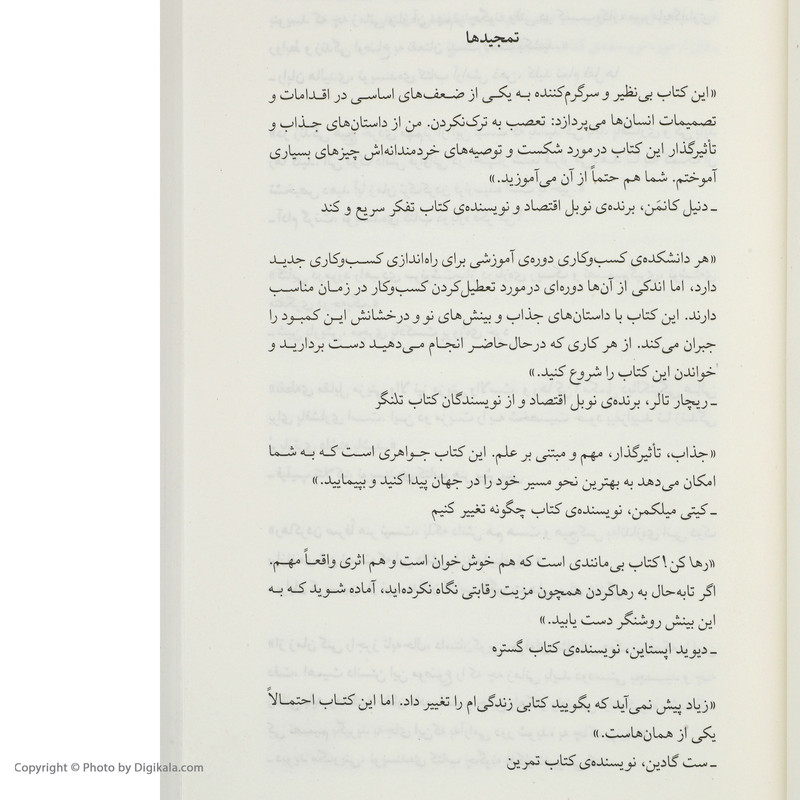 تمجیدها
«این کتاب بی‌نظیر و سرگرم‌کننده به یکی از ضعف‌های اساسی در اقدامات و
تصمیمات انسان‌ها می‌پردازد: تعصب به ترک‌نکردن. من از داستان‌های جذاب و
تأثیرگذار این کتاب درمورد شکست و توصیه‌های خردمندانه‌اش چیزهای بسیاری
آموختم. شما هم حتماً از آن می‌آموزید.»
ـ دنیل کانمَن، برنده‌ی نوبل اقتصاد و نویسنده‌ی کتاب تفکر سریع و کند
«هر دانشکده‌ی کسب‌وکاری دوره‌ی آموزشی برای راه‌اندازی کسب‌وکاری جدید
دارد، اما اندکی از آن‌ها دوره‌ای درمورد تعطیل‌کردن کسب‌وکار در زمان مناسب
دارند. این کتاب با داستان‌های جذاب و بینش‌های نو و درخشانش این کمبود را
جبران می‌کند. از هر کاری که درحال‌حاضر انجام می‌دهید دست بردارید و
خواندن این کتاب را شروع کنید.»
ـ ریچار تالر، برنده‌ی نوبل اقتصاد و از نویسندگان کتاب تلنگر
«جذاب، تأثیرگذار، مهم و مبتنی بر علم. این کتاب جواهری است که به شما
امکان می‌دهد به بهترین نحو مسیر خود را در جهان پیدا کنید و بپیمایید.»
ـ کیتی میلکمن، نویسنده‌ی کتاب چگونه تغییر کنیم
«رها کن! کتاب بی‌مانندی است که هم خوش‌خوان است و هم اثری واقعاً مهم.
اگر تابه‌حال به رهاکردن همچون مزیت رقابتی نگاه نکرده‌اید، آماده شوید که به
این بینش روشنگر دست یابید.»
ـ دیوید اپستاین، نویسنده‌ی کتاب گستره
«زیاد پیش نمی‌آید که بگویید کتابی زندگی‌ام را تغییر داد. اما این کتاب احتمالاً
یکی از همان‌هاست.»
ـ ست گادین، نویسنده‌ی کتاب تمرین
Copyright © Photo by Digikala.com